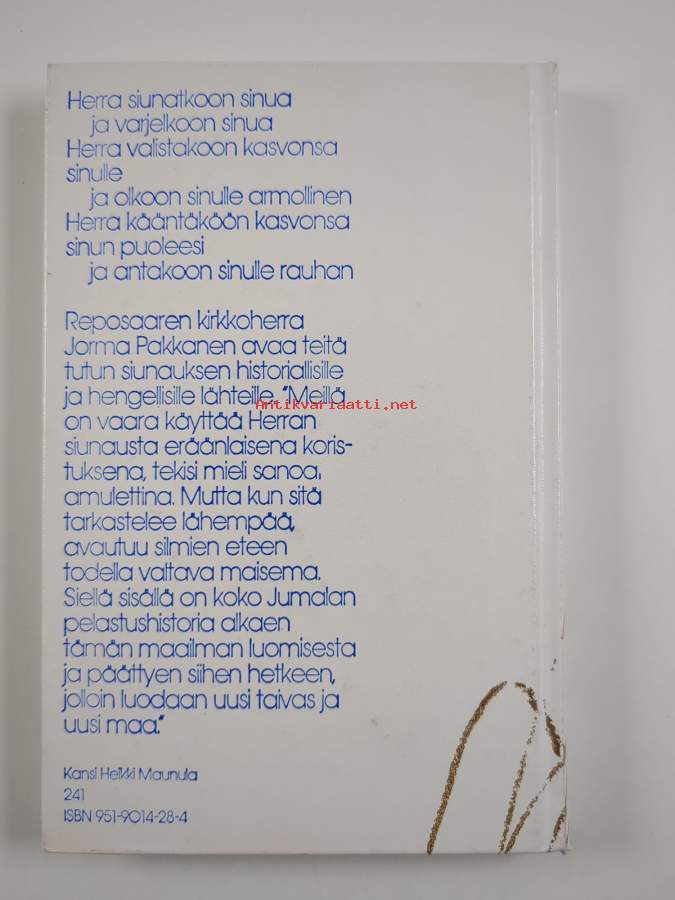 Herra siunatkoon sinua
ja varjelkoon sinua
Herra valistakoon kasvonsa
sinulle
ja olkoon sinulle armollinen
Herra kääntäköön kasvonsa
sinun puoleesi
ja antakoon sinulle rauhan
Reposaaren kirkkoherra
Jorma Pakkanen avaa teitä
tutun siunauksen historiallisille
ja hengellisille lähteille. "Meillä
Antikvariaatti.net
on vaara käyttää Herran
siunausta eräänlaisena koris-
tuksena, tekisi mieli sanoa,
amulettina. Mutta kun sitä
tarkastelee lähempää,
avautuu silmien eteen
todella valtava maisema.
Siellä sisällä on koko Jumalan
pelastushistoria alkaen
tämän maailman luomisesta
ja päättyen siihen hetkeen,
jolloin luodaan uusi taivas ja
uusi maa."
Kansi Heikki Maunula
241
ISBN 951-9014-28-4